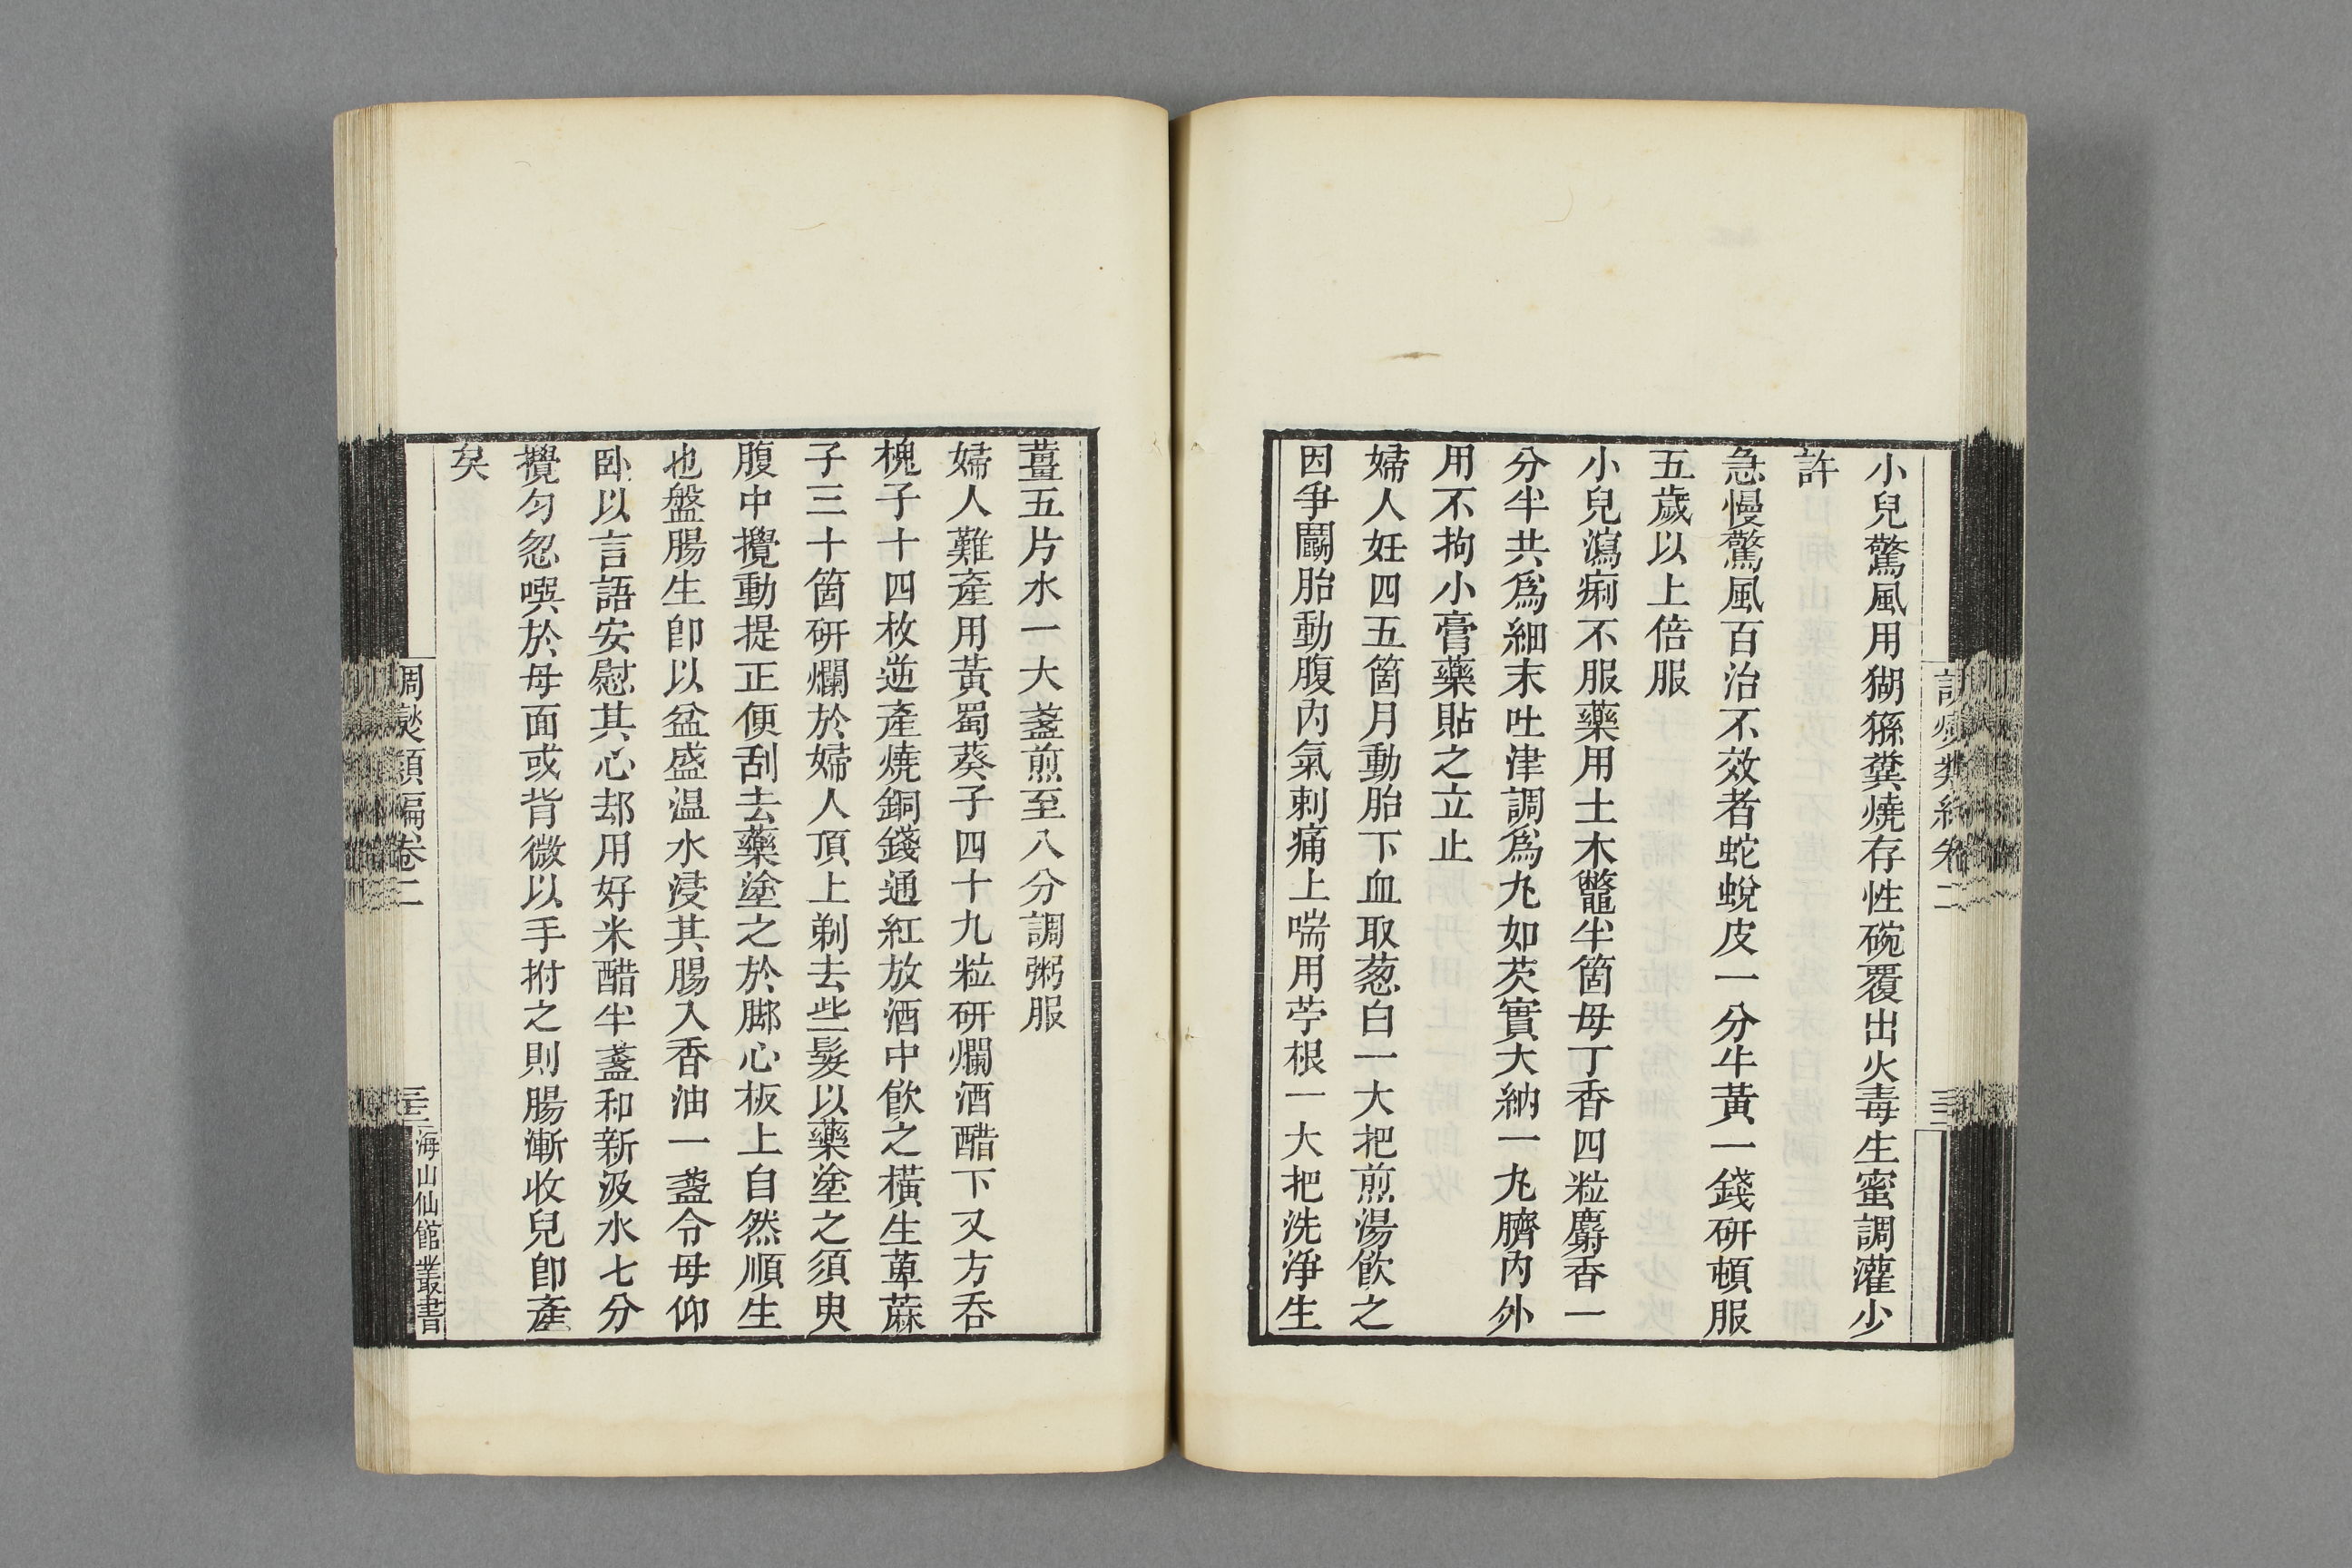 小兒驚風用猢猻糞燒存性碗覆出火毒生蜜調灌少
許
急慢驚風百治不效者蛇蛻皮一分牛黃一錢研頓服
五歲以上倍服
小兒瀉痢不服藥用土木鼈半箇母丁香四粒麝香一
分半共爲細末吐津調爲九如芡實大納一九臍內外
用不拘小膏藥貼之立止
婦人妊四五箇月動胎下血取葱白一大把煎湯飮之
因爭鬭胎動腹內氣刺痛上喘用苧根一大把洗淨生
薑五片水一大盞煎至八分調粥服
婦人難產用黃蜀葵子四十九粒研爛酒醋下又方呑
槐子十四枚逆產燒銅錢通紅放酒中飮之橫生萆蔴
子三十箇研爛於婦人頂上剃去些髮以藥塗之須臾
腹中攪動提正便刮去藥塗之於腳心板上自然順生
也盤腸生卽以盆盛温水浸其腸入香油一盞令母仰
卧以言語安慰其心却用好米醋半盞和新汲水七分
攪匀忽噀於母面或背微以手拊之則腸漸收兒卽產
矣
調燮類編卷二
海山仙館叢書